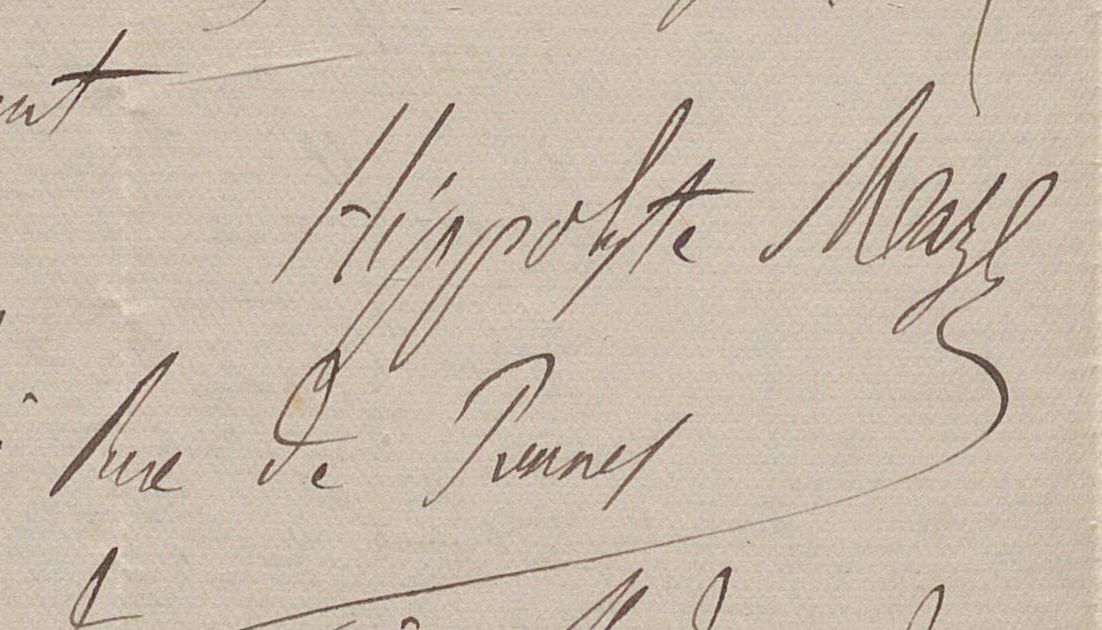 Hippolyte Maze
Rue de Rennes